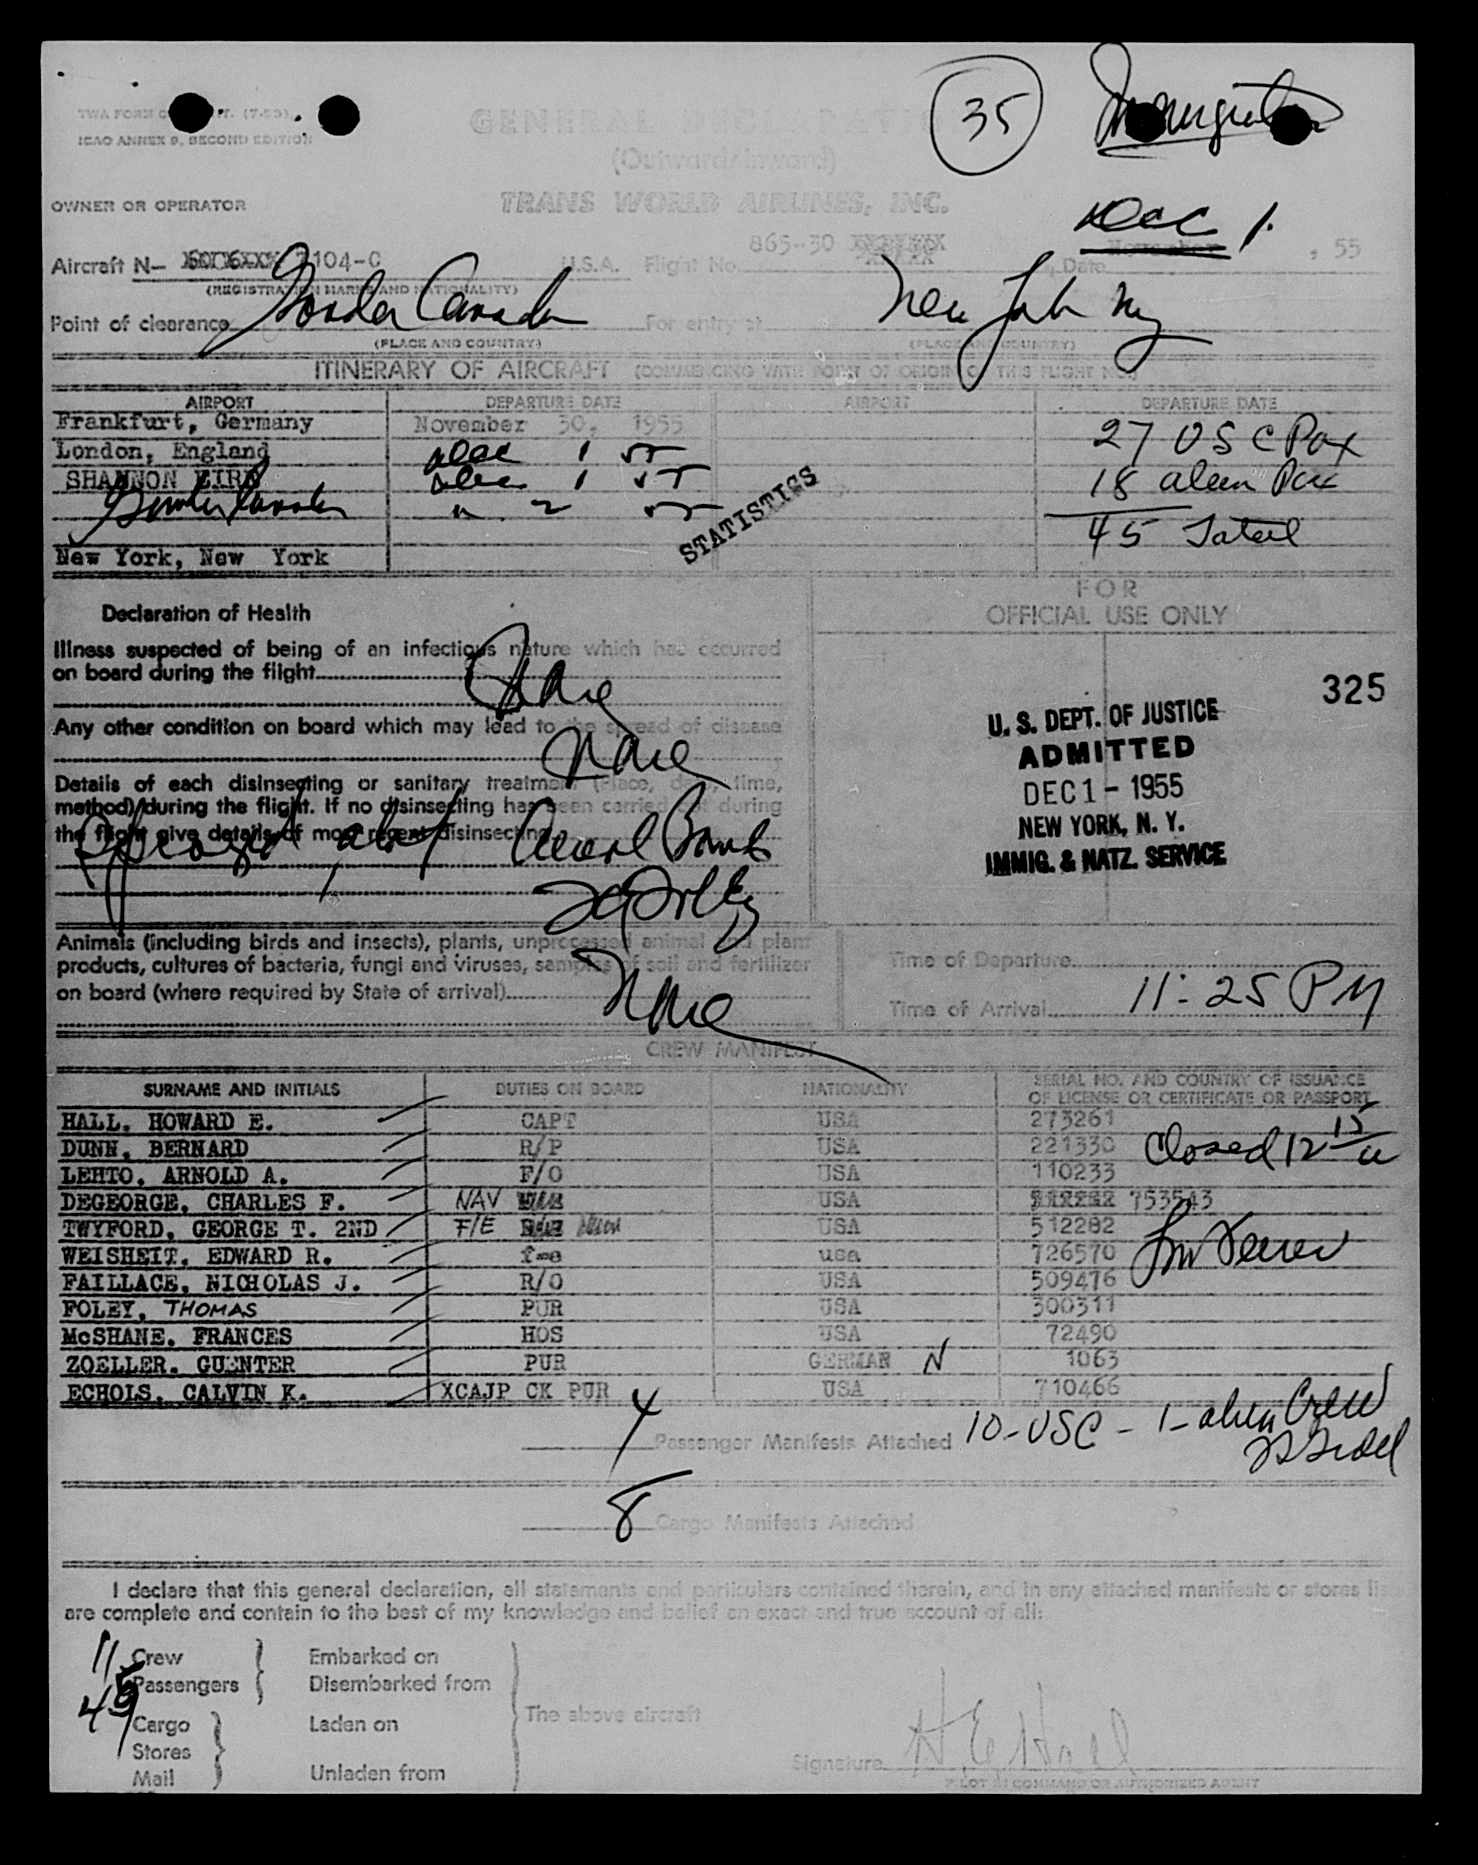 TWA FORM
ICAO ANNEX 9, SECOND EDITION
GENERAL DECLARATION
(Outward/Inward)
TRANS WORLD AIRLINES, INC.
35
Immigration
OWNER OR OPERATOR
Aircraft N- 7104-C U.S.A. Flight No. 865-30 Date November Dec 1. , 55
(REGISTRATION MARKS AND NATIONALITY)
Point of clearance Gander Canada For entry at New York NY
(PLACE AND COUNTRY) (PLACE AND COUNTRY)
ITINERARY OF AIRCRAFT (COMMENCING WITH POINT OF ORIGIN OF THIS FLIGHT NO.)
AIRPORT DEPARTURE DATE AIRPORT DEPARTURE DATE
Frankfurt, Germany November 30, 1955
London, England Dec 1 55
SHANNON EIRE Dec 1 55
Gander Canada " 2 55
New York, New York
27 USC Pax
18 alien Pax
45 Total
STATISTICS
Declaration of Health
Illness suspected of being of an infectious nature which has occurred
on board during the flight
None
Any other condition on board which may lead to the spread of disease
None
Details of each disinsecting or sanitary treatment (Place, date, time,
method) during the flight. If no disinsecting has been carried out during
the flight give details of most recent disinsecting
Aerosol Bomb
Animals (including birds and insects), plants, unprocessed animal and plant
products, cultures of bacteria, fungi and viruses, samples of soil and fertilizer
on board (where required by State of arrival)
None
FOR
OFFICIAL USE ONLY
325
U. S. DEPT. OF JUSTICE
ADMITTED
DEC 1 - 1955
NEW YORK, N. Y.
IMMIG. & NATZ. SERVICE
Time of Departure
Time of Arrival 11:25 PM
CREW MANIFEST
SURNAME AND INITIALS DUTIES ON BOARD NATIONALITY SERIAL NO. AND COUNTRY OF ISSUANCE
OF LICENSE OR CERTIFICATE OR PASSPORT
HALL, HOWARD E. CAPT USA 273261
DUNN, BERNARD R/P USA 221330
LEHTO, ARNOLD A. F/O USA 110233
DEGEORGE, CHARLES F. NAV USA 753543
TWYFORD, GEORGE T. 2ND F/E USA 512282
WEISHEIT, EDWARD R. f-e usa 726570
FAILLACE, NICHOLAS J. R/O USA 509476
FOLEY, THOMAS PUR USA 300311
McSHANE, FRANCES HOS USA 72490
ZOELLER, GUENTER PUR GERMAN N 1063
ECHOLS, CALVIN K. XCAJP CK PUR USA 710466
Closed 12 15
4 Passenger Manifests Attached
10-USC - 1-alien Crew
8 Cargo Manifests Attached
I declare that this general declaration, all statements and particulars contained therein, and in any attached manifests or stores lis
are complete and contain to the best of my knowledge and belief an exact and true account of all:
11 Crew Embarked on
45 Passengers Disembarked from
The above aircraft
Cargo Laden on
Stores
Mail Unladen from
Signature H E Hall
PILOT IN COMMAND OR AUTHORIZED AGENT